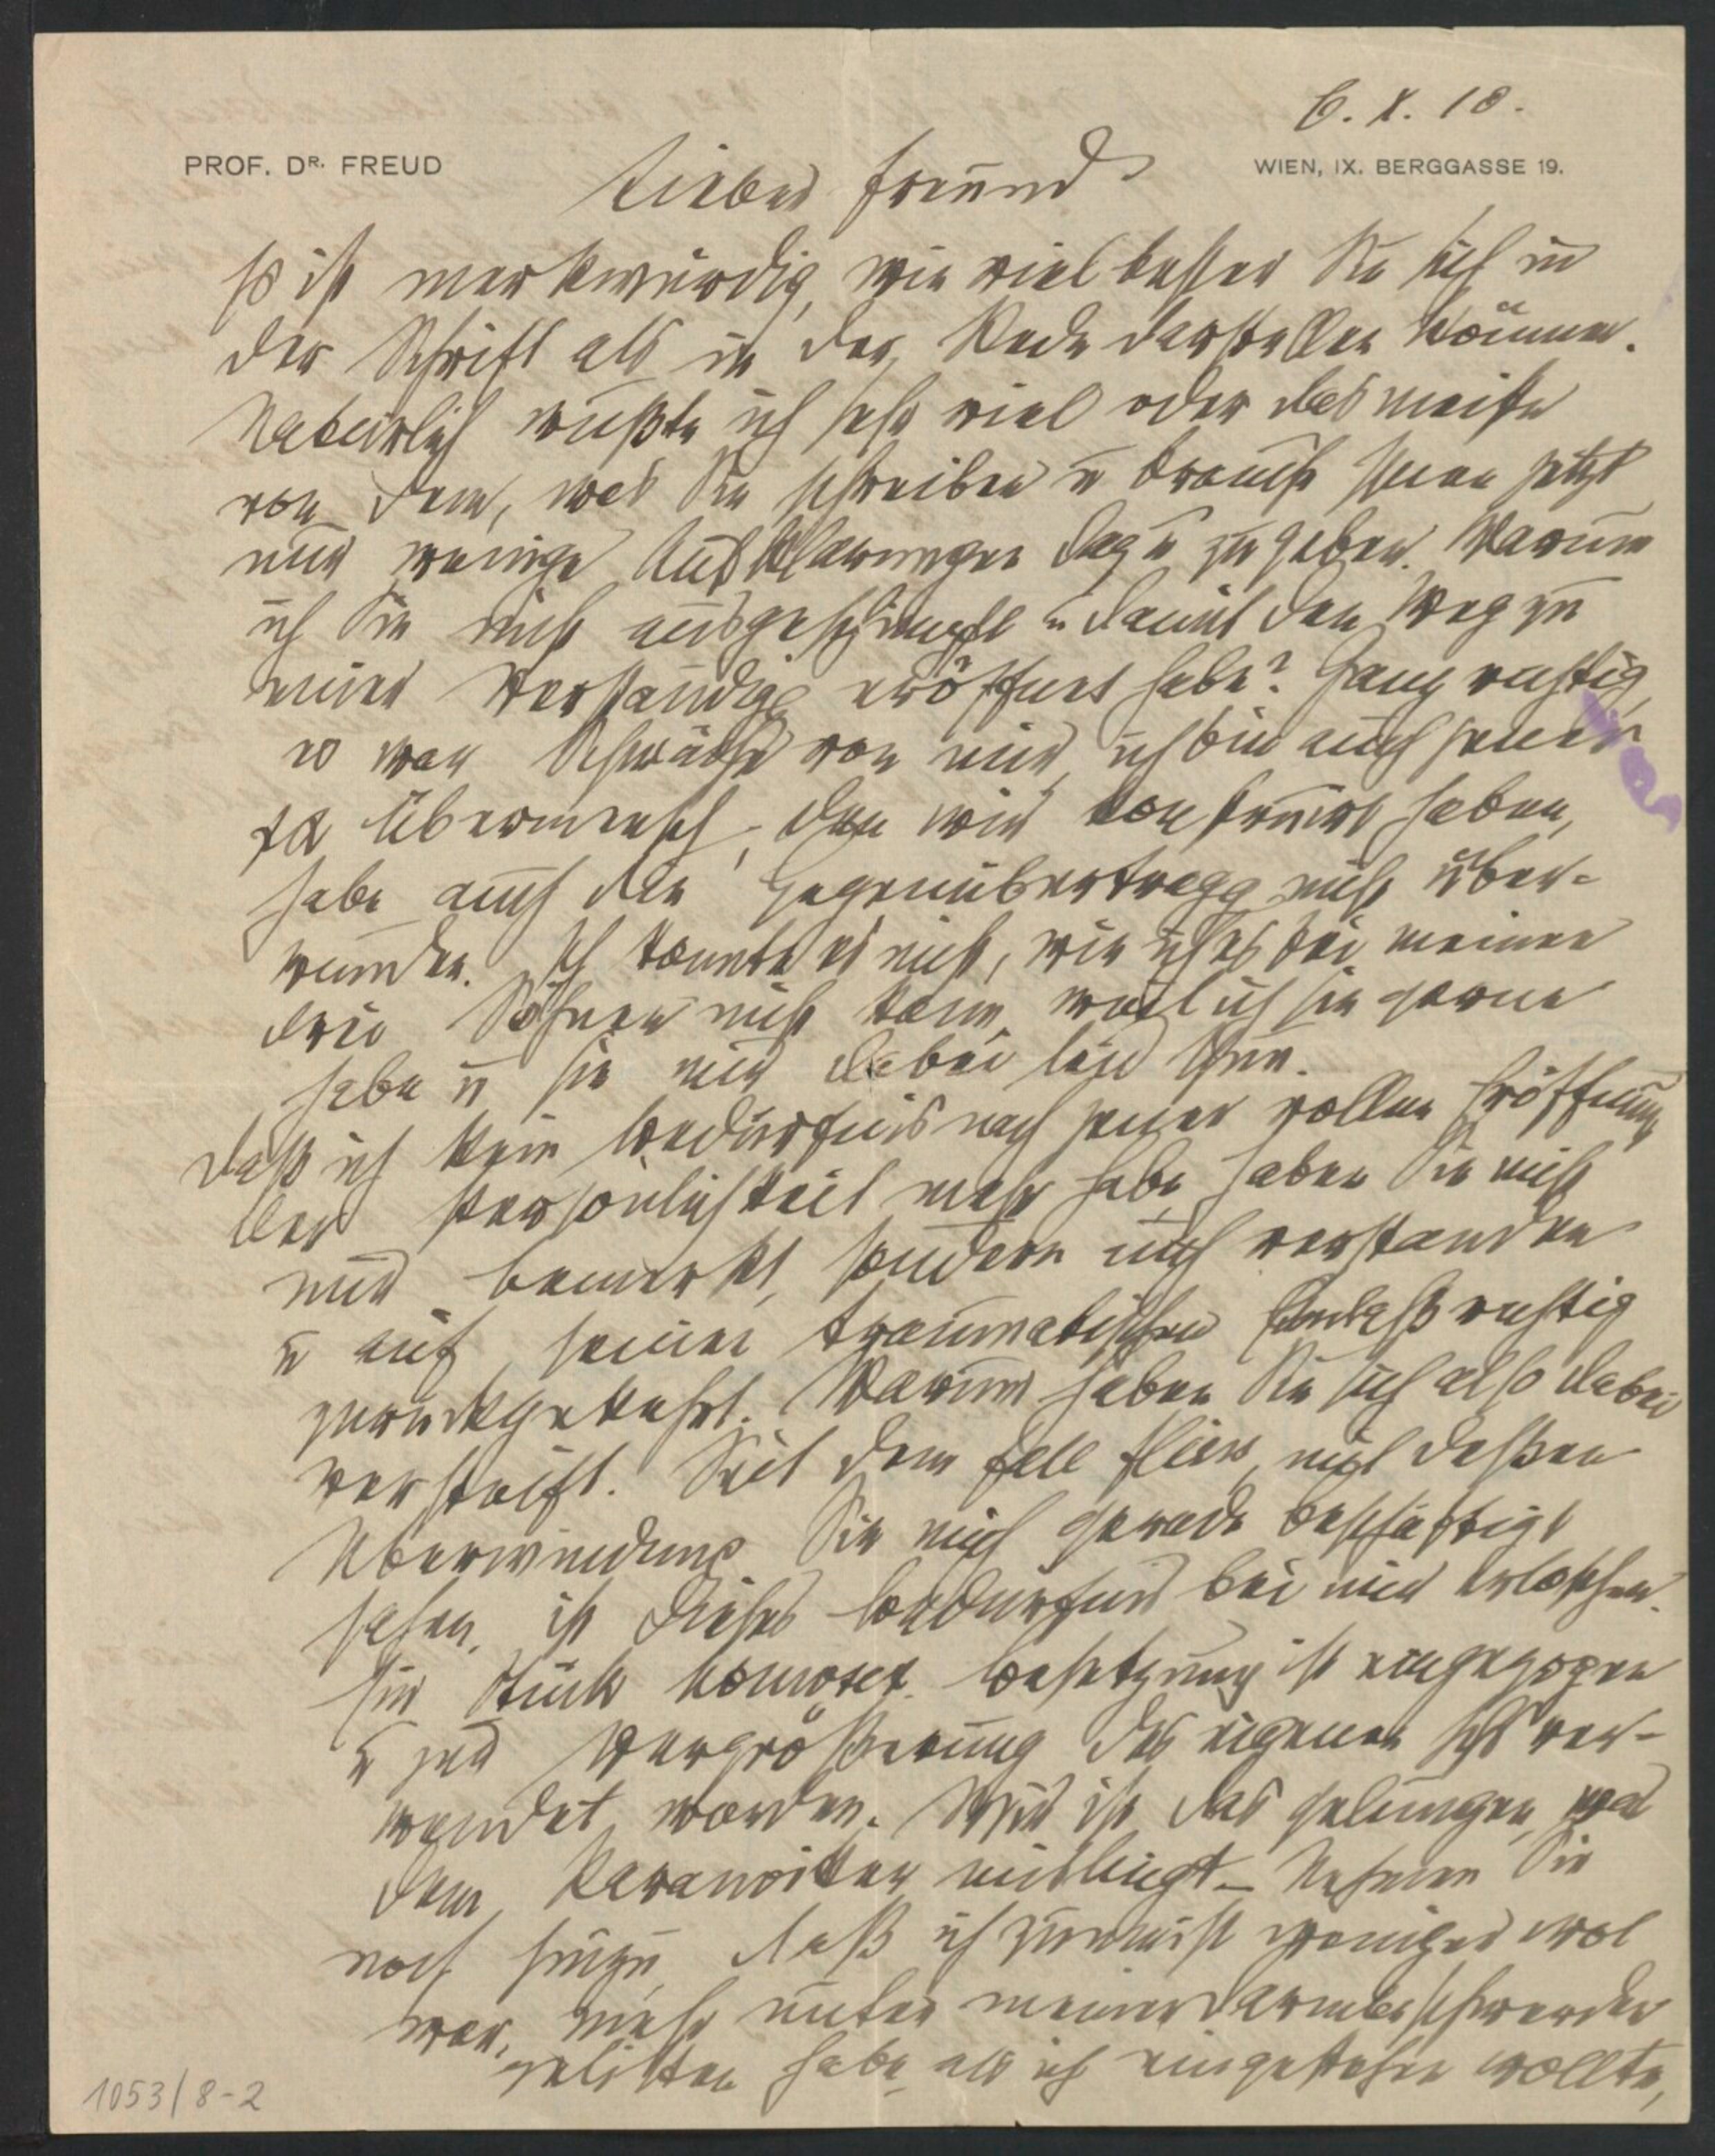 6. X. 10.
PROF. DR. FREUD
WIEN, IX. BERGGASSE 19.
Lieber Freund
Es ist merkwürdig, wie viel besser Sie sich in
der Schrift als in der Rede darstellen können.
Natürlich wußte ich sehr viel oder das meiste
von dem, was Sie schreiben u brauche Ihnen jetzt
nur wenige Aufklärungen dazu zu geben. Warum
ich Sie nicht ausgeschimpft u damit den Weg zu
einer Verständigg eröffnet habe? Ganz richtig,
es war Schwäche von mir, ich bin auch jener
ψα Übermensch, den wir konstruirt haben,
habe auch die Gegenübertragg nicht über-
wunden. Ich konnte es nicht, wie ich es bei meinen
drei Söhnen nicht kann, weil ich sie gerne
habe u sie mir dabei leid thun.
Daß ich kein Bedürfnis nach jener vollen Eröffnung
der Persönlichkeit mehr habe, haben Sie nicht
nur bemerkt, sondern auch verstanden
u auf seinen traumatischen Anlaß richtig
zurückgekehrt. Warum haben Sie sich also dabei
versteift. Seit dem Fall Fließ, mit dessen
Überwindung Sie mich gerade beschäftigt
sahen, ist dieses Bedürfnis bei mir erloschen.
Ein Stück homosex. Besetzung ist eingezogen
u zur Vergrößerung des eigenen Ichs ver-
wendet worden. Mir ist das gelungen, was
dem Paranoiker mislingt – Nehmen Sie
noch hinzu, daß ich zumeist weniger wol
war, mehr unter meinen Darmbeschwerden
gelitten habe, als ich eingestehen wollte,
1053/8-2